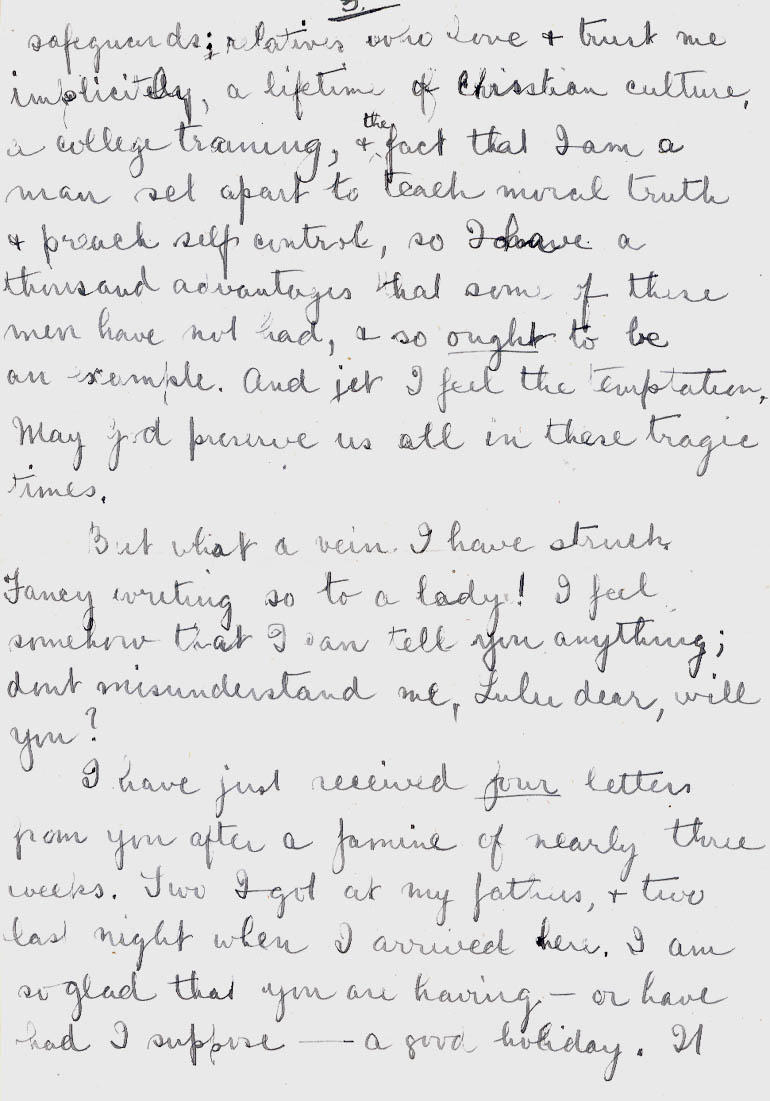 3.
safeguards; relatives who love & trust me
implicitly, a lifetime of Christian culture,
a college training, & the fact that I am a
man set apart to teach moral truth
& preach self control, so I have a
thousand advantages that some of these
men have not had, & so ought to be
an example. And yet I feel the temptation,
May God preserve us all in these tragic
times.
But what a vein I have struck.
Fancy writing so to a lady! I feel
somehow that I can tell you anything;
dont misunderstand me, Lulu dear, will
you?
I have just received four letters
from you after a famine of nearly three
weeks. Two I got at my fathers, & two
last night when I arrived here. I am
so glad that you are having - or have
had I suppose — a good holiday. It